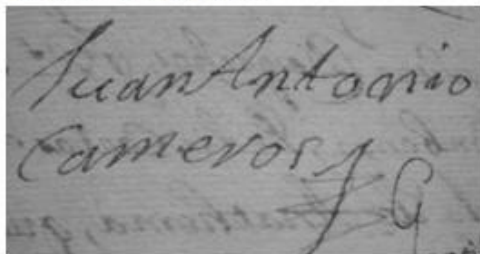 Juan Antonio
Cameros